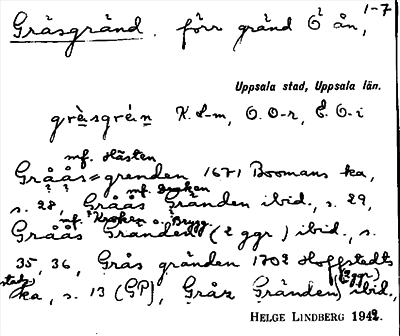 1-7
Gräsgränd. förr gränd Ö ån,
Uppsala stad, Uppsala län.
gräsgrän K. S-m, O. O-r, E. O-i
mf. Hästen
Gråås=grenden 1671 Boomans ka,
mf. Draken
s. 28, Gråås Gränden ibid., s. 29,
mf. Kroken o. Brygg.
Gråås Granden (2 ggr) ibid., s.
35, 36, Grås gränden 1702 Hoffstedts
stads ka, s. 13 (GP), Gråz Gränden (2 ggr) ibid.,
HELGE LINDBERG 1942.